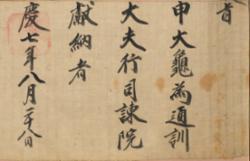 旨
申大龜為通訓
大夫行司諫院
獻納者
慶七年八月二十八日